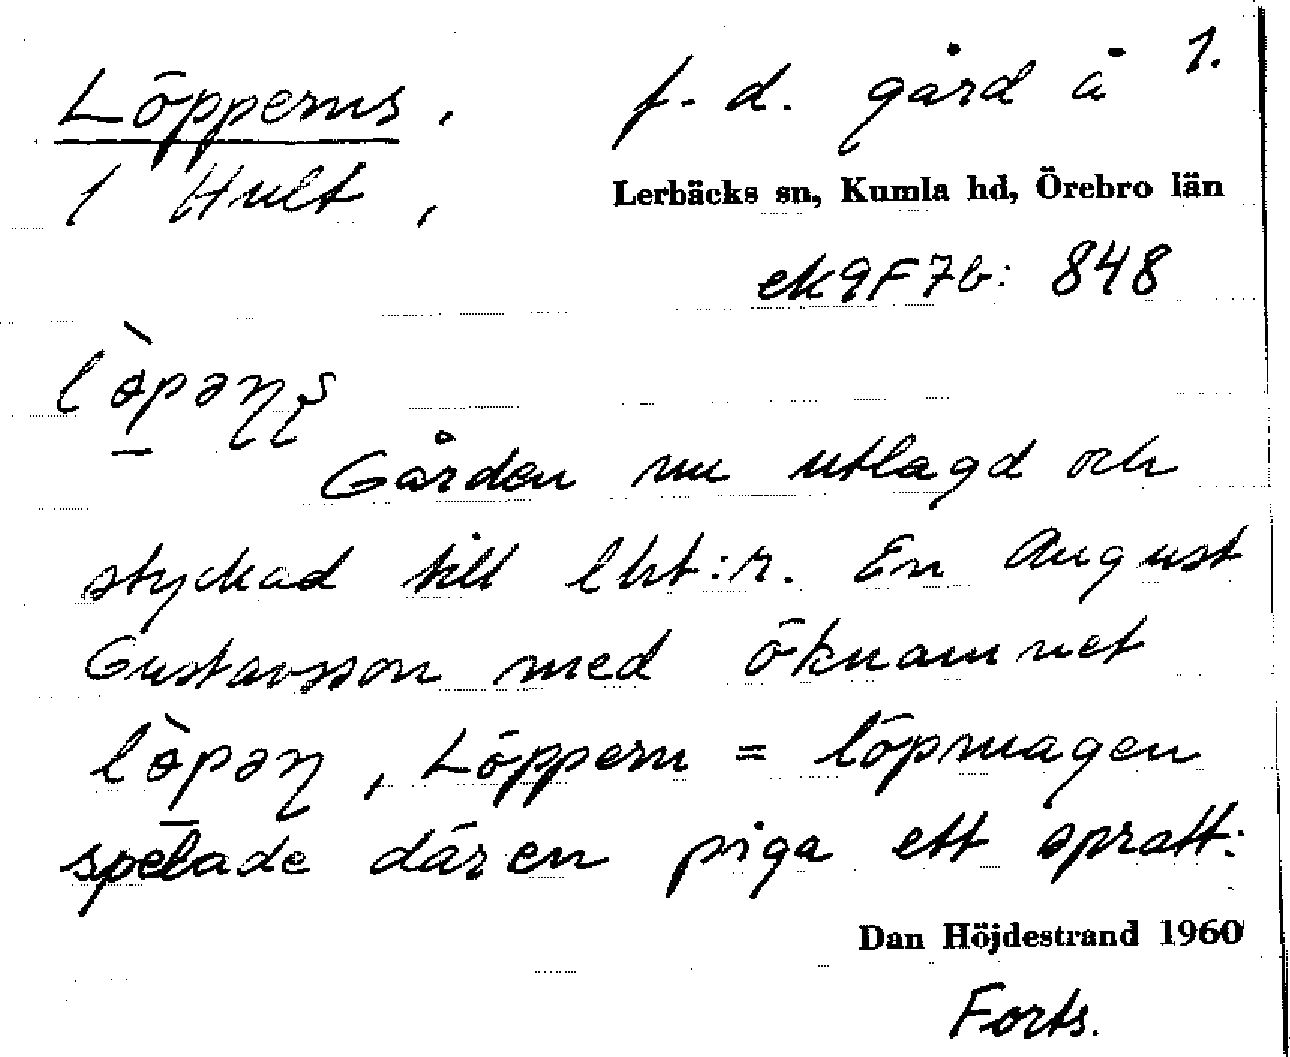 Löpperns, f.d. gård å 1.
1 Hult, Lerbäcks sn, Kumla hd, Örebro län
ek9F7b: 848
Gården nu utlagd och
styckad till lht:r. En August
Gustavsson med öknamnet
Löppern = löpmagen
spelade där en piga ett spratt:
Dan Höjdestrand 1960
Forts.